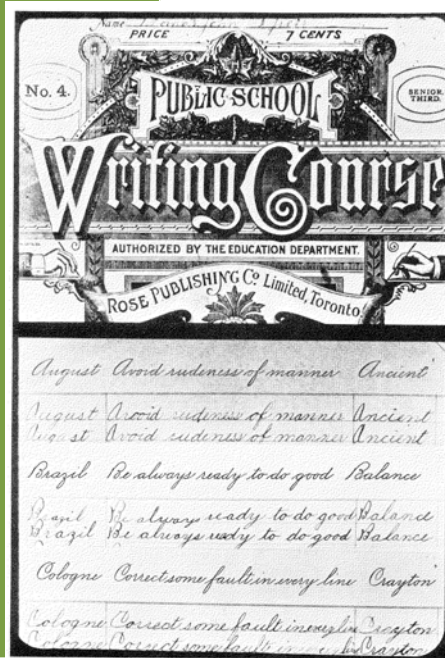 Name
PRICE 7 CENTS
No. 4.
PUBLIC SCHOOL
SENIOR THIRD.
Writing Course
AUTHORIZED BY THE EDUCATION DEPARTMENT.
ROSE PUBLISHING Co. Limited, Toronto.
August Avoid rudeness of manner Ancient
August Avoid rudeness of manner Ancient
August Avoid rudeness of manner Ancient
Brazil Be always ready to do good Balance
Brazil Be always ready to do good Balance
Brazil Be always ready to do good Balance
Cologne Correct some fault in every line Crayton
Cologne Correct some fault in every line Crayton
Cologne Correct some fault in Crayton